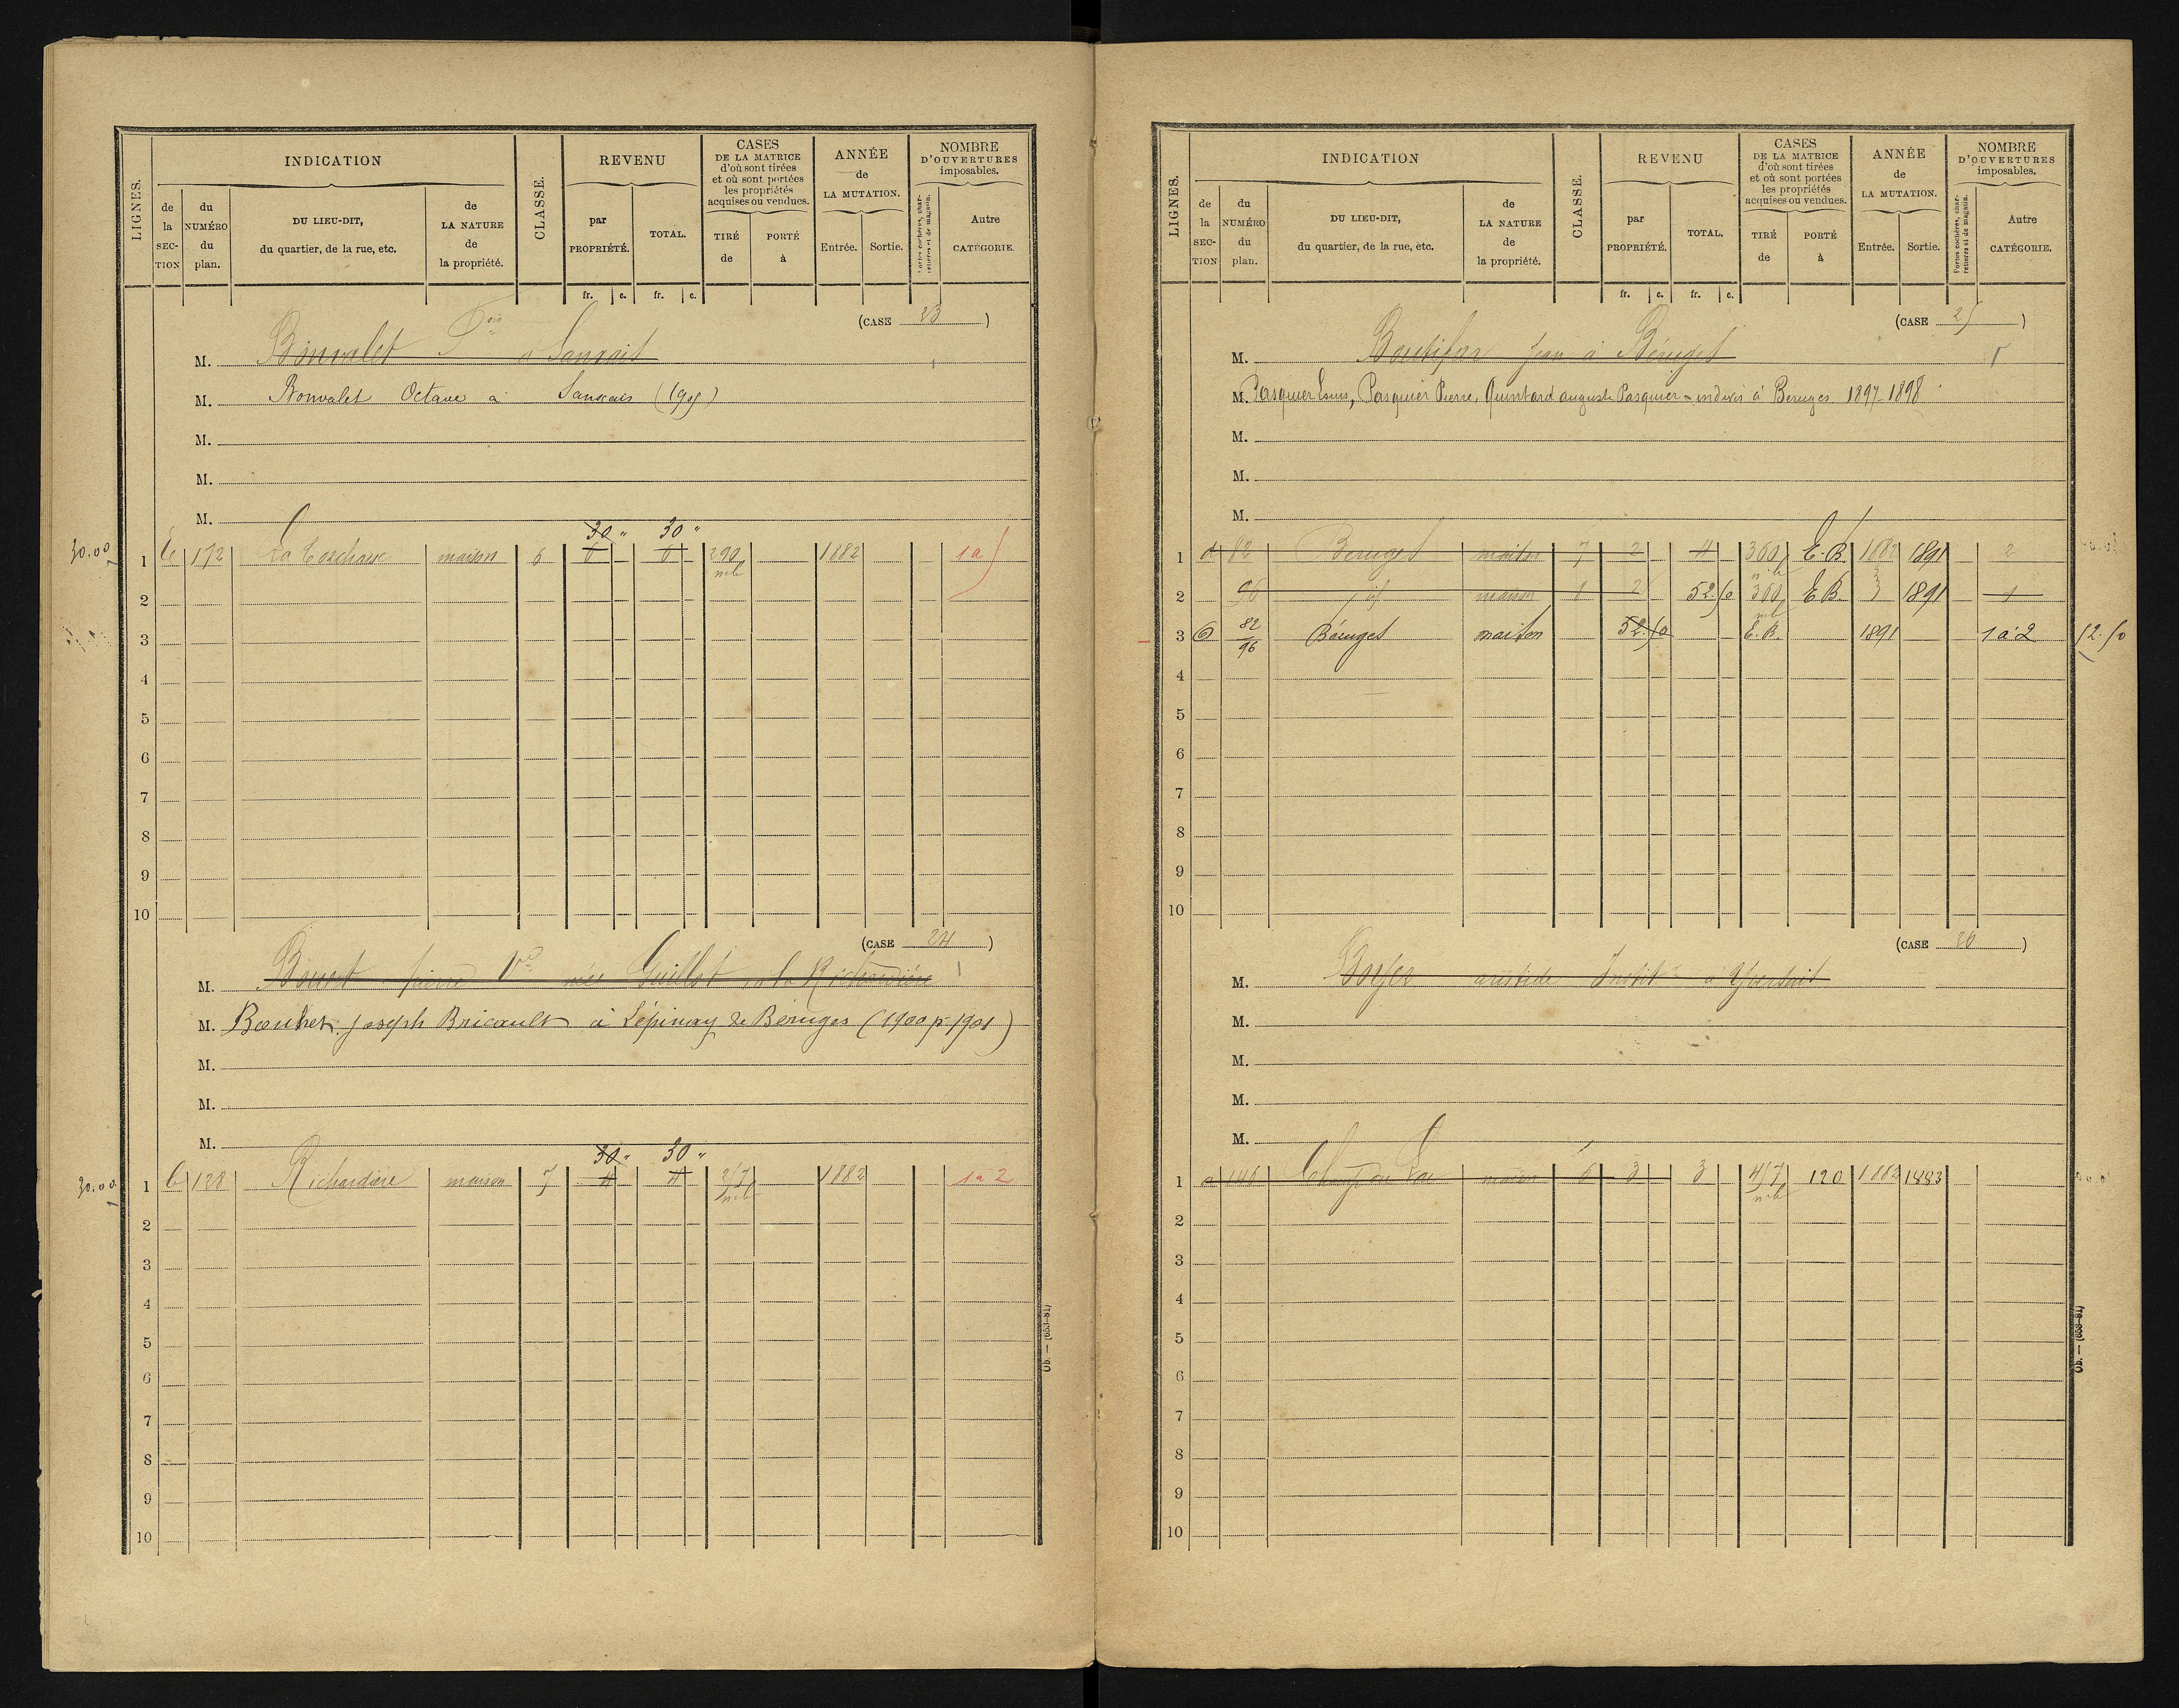 LIGNES.
INDICATION
de la SECTION
du NUMÉRO du plan.
DU LIEU-DIT, du quartier, de la rue, etc.
de LA NATURE de la propriété.
CLASSE.
REVENU
par PROPRIÉTÉ.
TOTAL.
CASES DE LA MATRICE d'où sont tirées et où sont portées les propriétés acquises ou vendues.
TIRÉ de
PORTÉ à
ANNÉE de LA MUTATION.
Entrée.
Sortie.
NOMBRE D'OUVERTURES imposables.
Portes cochères, charretières et de magasin.
Autre CATÉGORIE.
fr. c. fr. c.
(CASE 23)
M. Bonvalet à Sanxais
M. Bonvalet Octave à Sanxais
M.
M.
M.
30 " 30 "
30.00 1 172 maison 6 6 6 290 1882
2
3
4
5
6
7
8
9
10
(CASE 24)
M. Bouet pierre Vve née Guillot à la Richardière
M. Bauhet joseph Bricault à Lépinay de Béruges (1900 p 1901)
M.
M.
M.
30 " 30 "
30.00 1 b 128 Richardière maison 7 4 4 257 1882 1 à 2
2
3
4
5
6
7
8
9
10
Ob. — (653-81)
LIGNES.
INDICATION
de la SECTION
du NUMÉRO du plan.
DU LIEU-DIT, du quartier, de la rue, etc.
de LA NATURE de la propriété.
CLASSE.
REVENU
par PROPRIÉTÉ.
TOTAL.
CASES DE LA MATRICE d'où sont tirées et où sont portées les propriétés acquises ou vendues.
TIRÉ de
PORTÉ à
ANNÉE de LA MUTATION.
Entrée.
Sortie.
NOMBRE D'OUVERTURES imposables.
Portes cochères, charretières et de magasin.
Autre CATÉGORIE.
fr. c. fr. c.
(CASE 25)
M. Jean à Béruges
M. Pasquier Louis, Pasquier Pierre, Quintard auguste Pasquier - indivis à Beruges 1897-1898
M.
M.
M.
1 d 82 Beruges maison 7 2 4 360 E.B. 1882 1891 2
2 96 id maison 2 52.50 360 E.B. 1891 1
3 82/96 Béruges maison 52.50 E.B. 1891 1 à 2 52.50
4
5
6
7
8
9
10
(CASE 26)
M. Boyer aristide Instit à
M.
M.
M.
M.
1 a 146 Champ du maison 6 3 3 457 120 1882 1883
2
3
4
5
6
7
8
9
10
Ob. — (653-81)